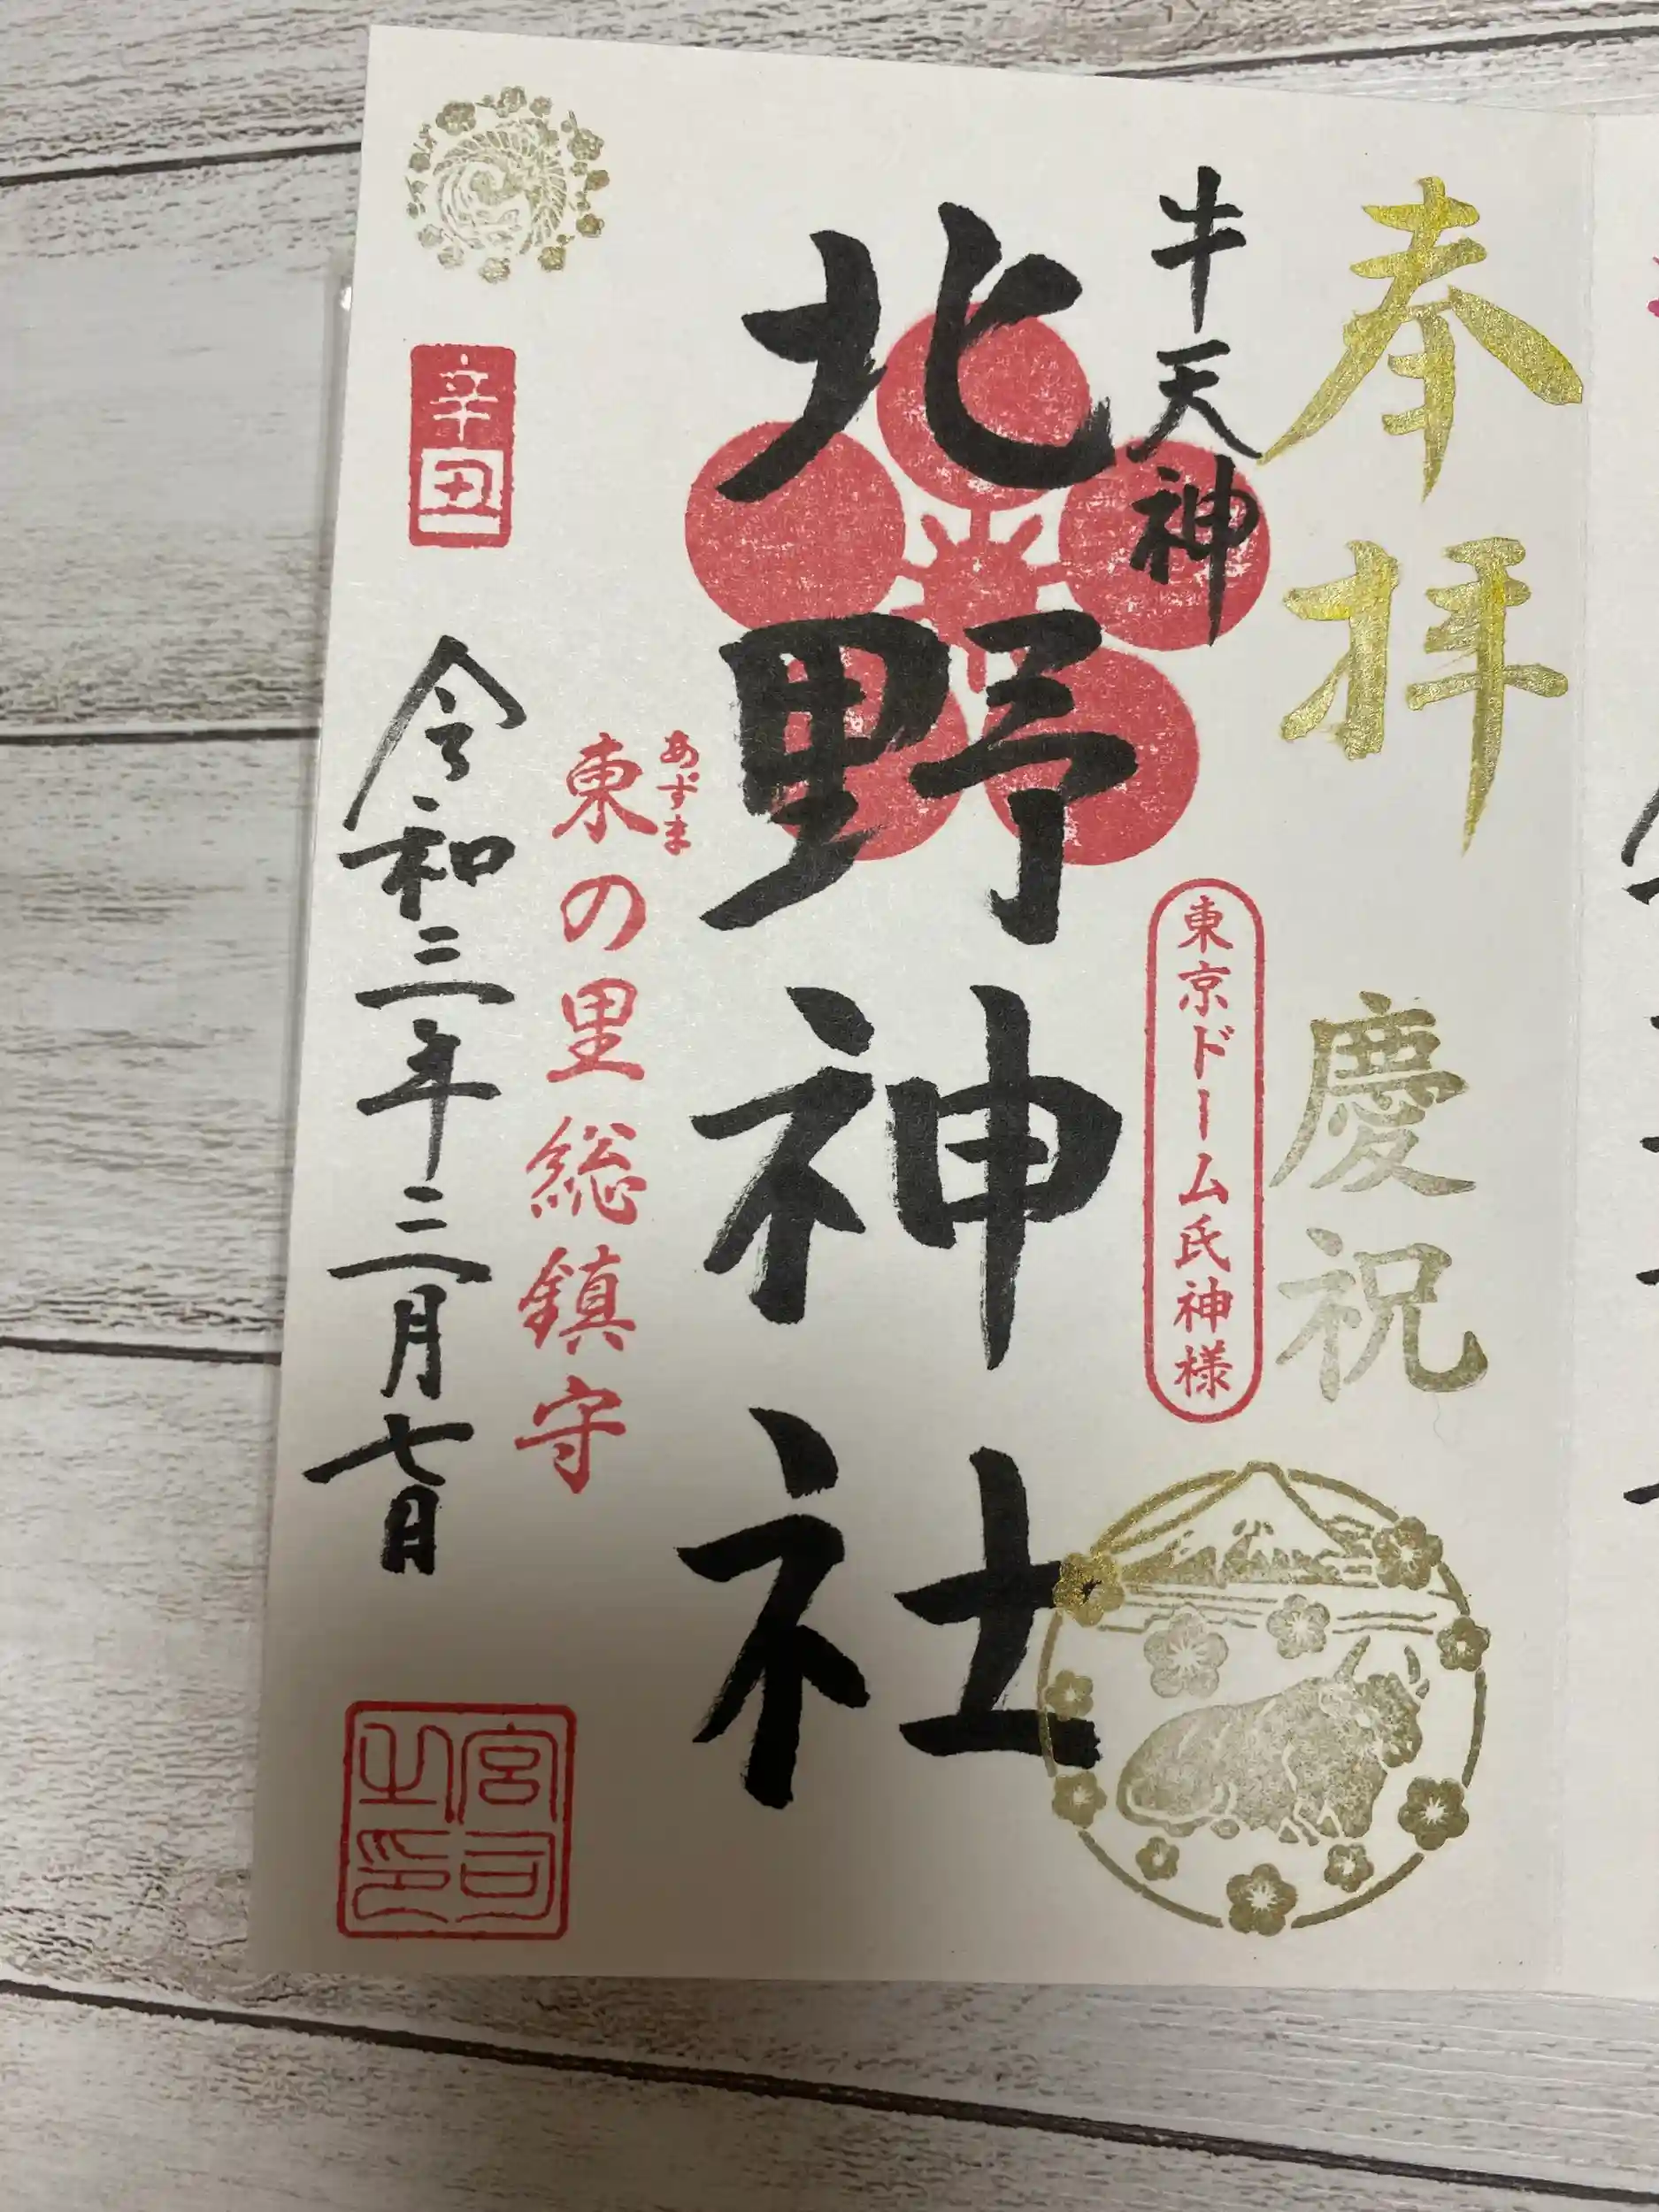 奉拝
慶祝
牛天神
東京ドーム氏神様
北野神社
あずま
東の里総鎮守
辛丑
令和三年三月七日
宮司
之印